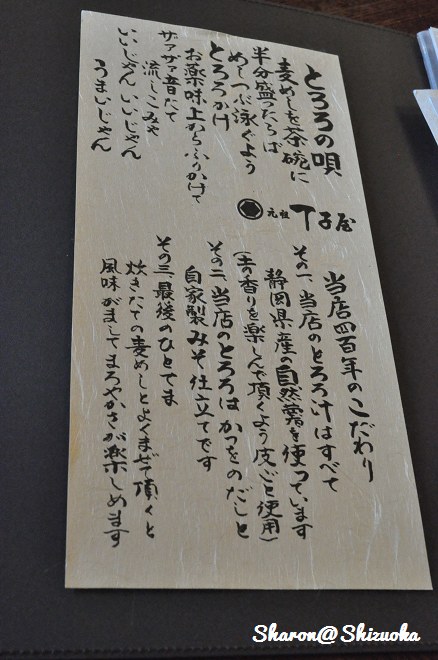 とろろの唄
麦めしを茶碗に
半分盛ったらば
めしつぶ泳ぐよう
とろろかけ
お薬味上からふりかけて
ザァザァ音たて
流しこみゃ
いいじゃん いいじゃん
うまいじゃん
元祖 丁子屋
当店四百年のこだわり
その一、当店のとろろ汁はすべて
静岡県産の自然薯を使っています
(土の香りを楽しんで頂くよう皮ごと使用)
その二、当店のとろろはかつをのだしと
自家製みそ仕立てです
その三、最後のひとてま
炊きたての麦めしとよくまぜて頂くと
風味がましてまろやかさが楽しめます
Sharon@Shizuoka